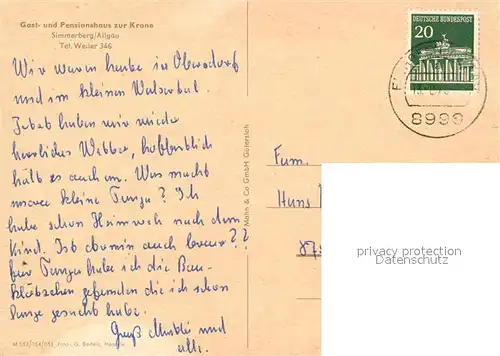 Gast- und Pensionshaus zur Krone
Simmerberg/Allgäu
Tel. Weiler 346
Wir waren heute in Oberstdorf
und im kleinen Walsertal.
haben wir wieder
herrliches Wetter, hoffentlich
hält es auch an. Was macht
unsere kleine Tanja? Ich
habe schon Heimweh nach dem
Kind. Ist auch brav??
für Tanja habe ich die Bau-
klötzchen gefunden die ich schon
lange gesucht habe.
Gruß und
alle.
Mohn & Co GmbH Gütersloh
DEUTSCHE BUNDESPOST
20
8999
Fam.
Hans
875
privacy protection
Datenschutz